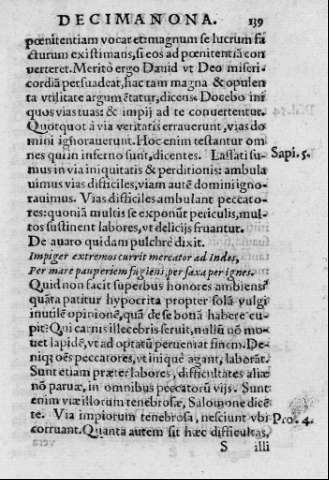 DECIMANONA. 139
pœnitentiam vocar et magnum se lucrum fa
cturum existimans, si eos ad pœnitentiã con
verteret. Meritò ergo Dauid vt Deo miseri-
cordiã persuadeat, hac tam magna & opulen
ta vtilitate argumẽtatur, dicens. Docebo ini
quos vias tuas: & impij ad te conuertentur.
Quotquot à via veritatis errauerunt, vias do
mini ignorauerunt. Hoc enim testantur om
nes qui in inferno sunt, dicentes. Lassati su- Sapi. 5.
mus in via iniquitatis & perditionis: ambula
uimus vias difficiles, viam autẽ domini igno-
rauimus. Vias difficiles ambulant peccato-
res: quoniã multis se exponũt periculis, mul-
tos sustinent labores, vt delicijs fruantur.
De auaro quidam pulchrè dixit.
Impiger extremos currit mercator ad Indos,
Per mare pauperiem fugiens, per saxa per ignes.
Quid non facit superbus honores ambiens?
quãta patitur hypocrita propter solã vulgi
inutilẽ opinionẽ, quã de se bonã habere cu-
pit? Qui carnis illecebris seruit, nullũ nõ mo-
uet lapidẽ, vt ad optatũ perueniat finem. De-
niqꝫ oẽs peccatores, vt iniquè agant, laborãt.
Sunt etiam præter labores, difficultates aliæ
nõ paruæ, in omnibus peccatorũ vijs. Sunt
enim viæ illorum tenebrosæ, Salomone dicẽ
te. Via impiorum tenebrosa, nesciunt vbi Pro. 4.
corruant. Quanta autem sit hæc difficultas,
S illi